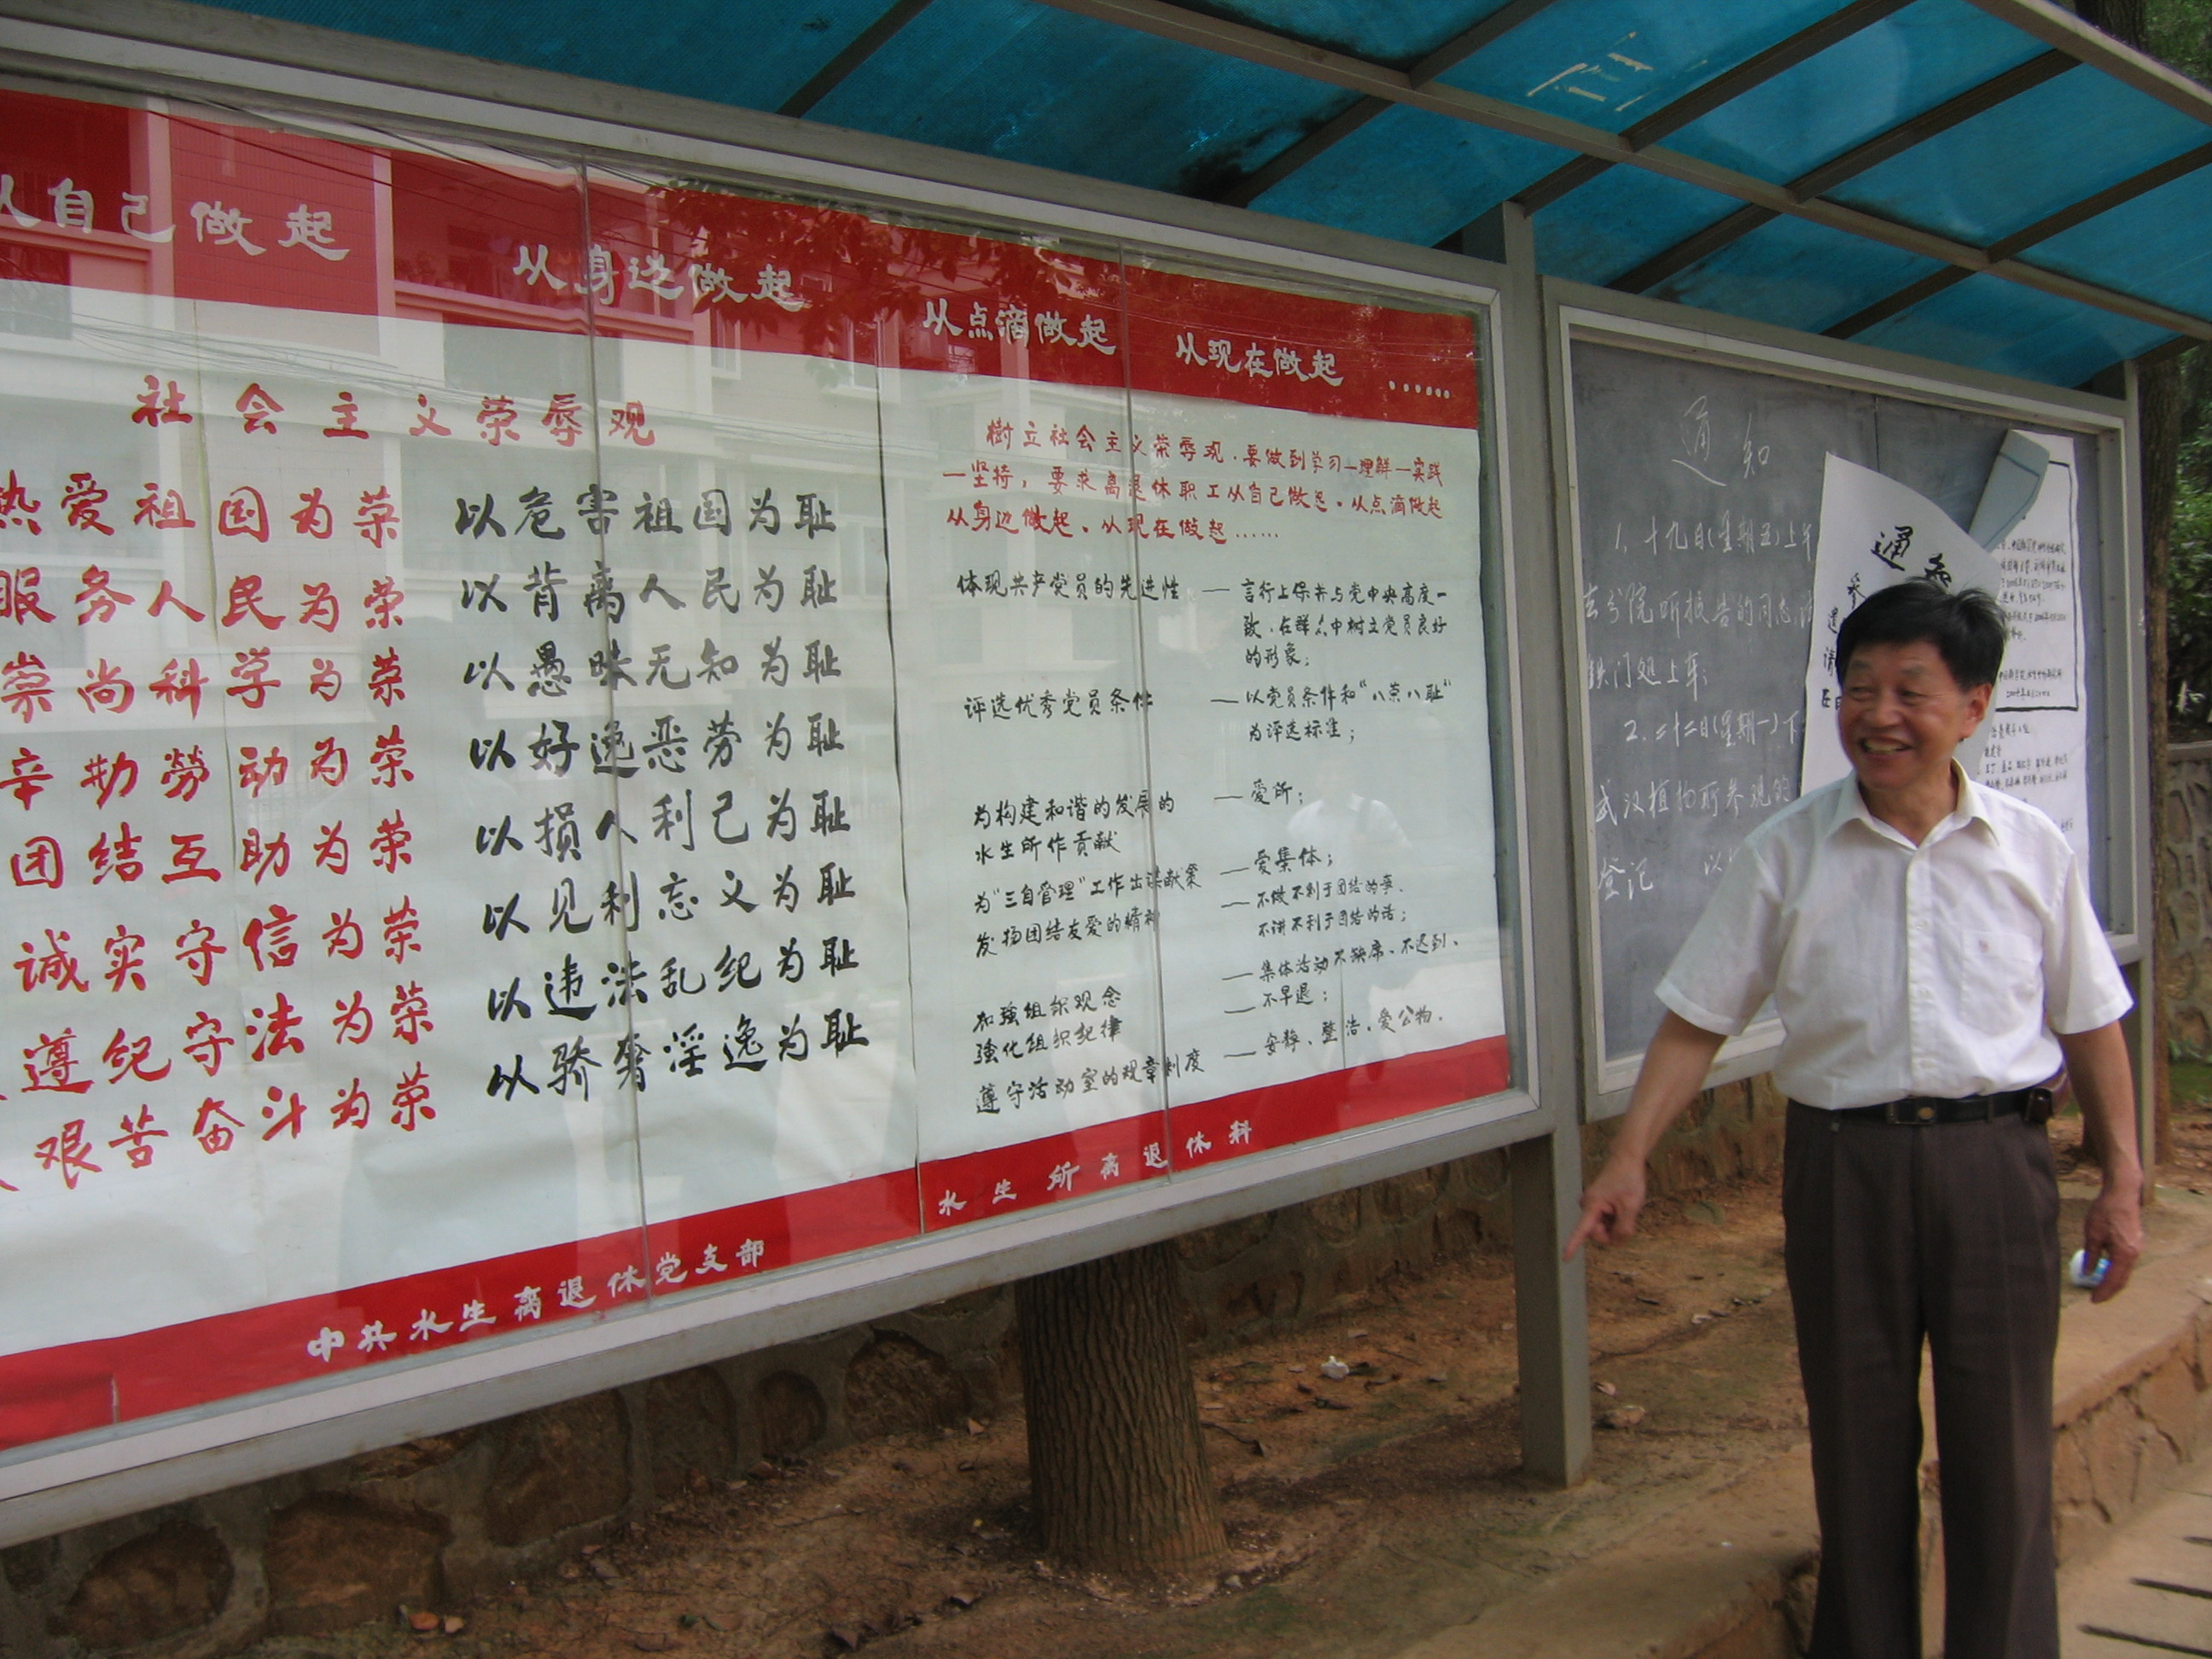 从自己做起 从身边做起 从点滴做起 从现在做起 ……
社会主义荣辱观
热爱祖国为荣 以危害祖国为耻
服务人民为荣 以背离人民为耻
崇尚科学为荣 以愚昧无知为耻
辛勤劳动为荣 以好逸恶劳为耻
团结互助为荣 以损人利己为耻
诚实守信为荣 以见利忘义为耻
遵纪守法为荣 以违法乱纪为耻
艰苦奋斗为荣 以骄奢淫逸为耻
中共水生离退休党支部
樹立社会主义荣辱观.要做到学习—理解—实践
—坚持，要求离退休职工从自己做起.从点滴做起
从身边做起.从现在做起……
体现共产党员的先进性 — 言行上保持与党中央高度一
致.在群众中树立党员良好
的形象；
评选优秀党员条件 — 以党员条件和“八荣八耻”
为评选标准；
为构建和谐的发展的 — 爱所；
水生所作贡献 — 爱集体；
为“三自管理”工作出谋献策 — 不做不利于团结的事、
发扬团结友爱的精神 不讲不利于团结的话；
加強组织观念 — 集体活动不缺席、不迟到、
強化组织纪律 — 不早退；
遵守活动室的规章制度 — 安静、整洁、爱公物.
水生所离退休科
通知
1、十九日(星期五)上午
去分院听报告的同志请
铁门处上车；
2.二十二日(星期一)下
武汉植物所参观的
登记 以
通